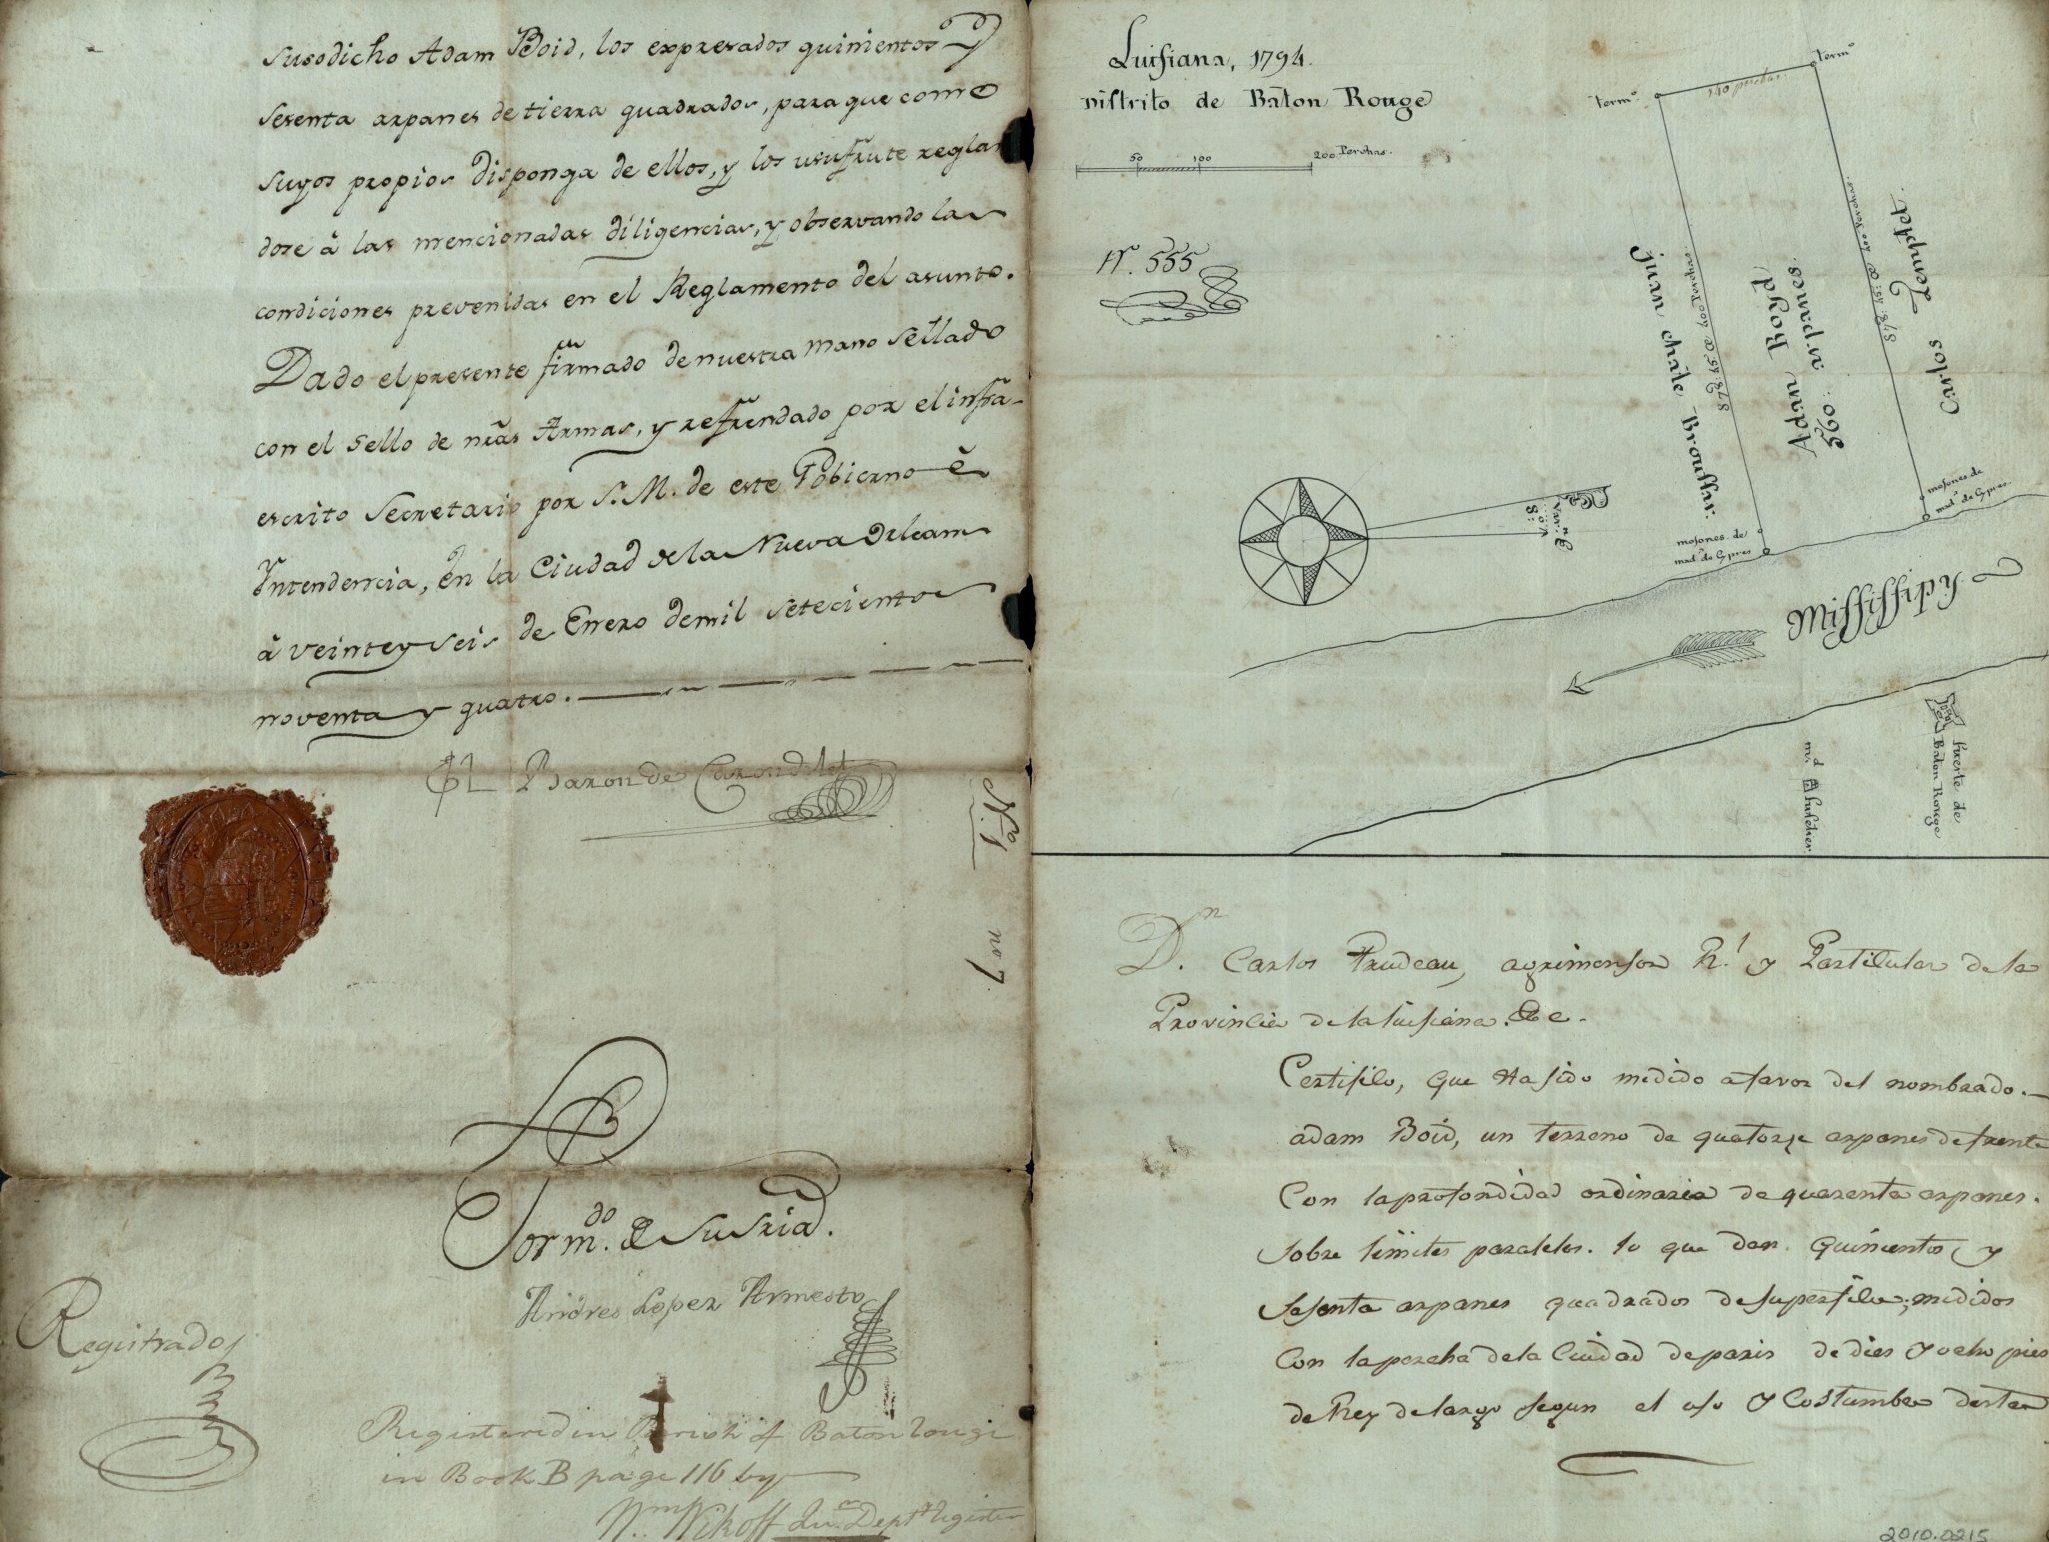 susodicho Adam Boid, los expresados quinientos y
sesenta arpanes de tierra quadrados, para que como
suyos propios disponga de ellos, y los usufrute reglan
dose â las mencionadas diligencias, y observando las
condiciones prevenidas en el Reglamento del asunto.
Dado el presente firmado de nuestra mano sellado
con el sello de nrãs Armas, y refrendado por el infra-
escrito Secretario por S. M. de este Gobierno è
Yntendencia, en la Ciudad de la Nueva Orleans
â veinte y seis de Enero de mil setecientos
noventa y quatro.
El Baron de Carondelet
no 7
Por m.do de Su Sria.
Andres Lopez Armesto
Registrado
Registered in Parish of Baton Rouge
in Book B page 116 by
Wm. Wikoff Jur. Depty Register
Luisiana, 1794.
Distrito de Baton Rouge
50 100 200 Perchas.
Nº. 555
termº
termº
140 perchas
878:15: @ 400 Perchas.
878:15: @ 400 Perchas.
Adan Boyd
560: arpanes.
Carlos
mojones de
mad.ª de Cypres
mojones de
mad.ª de Cypres
Missisipy
8:
fuerte de
Baton Rouge
Dn. Carlos Trudeau, agrimensor Rl. y Particular de la
Provincia de la Luisiana. &c.
Certifico, que ha sido medido a favor del nombrado.
adam Boid, un terreno de quatorze arpanes de frente
Con la profondidad ordinaria de quarenta arpanes.
sobre limites paralelos. lo que dan quinientos y
sesenta arpanes quadrados de superficie; medidos
Con la percha de la Ciudad de paris de dies y ocho pies
de Rey de largo segun el uso y Costumbre desta
2010.0215